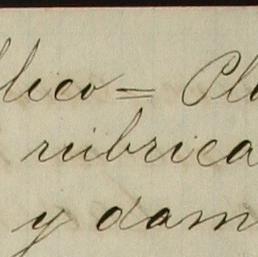 blico = Pl
rúbrica
y dam